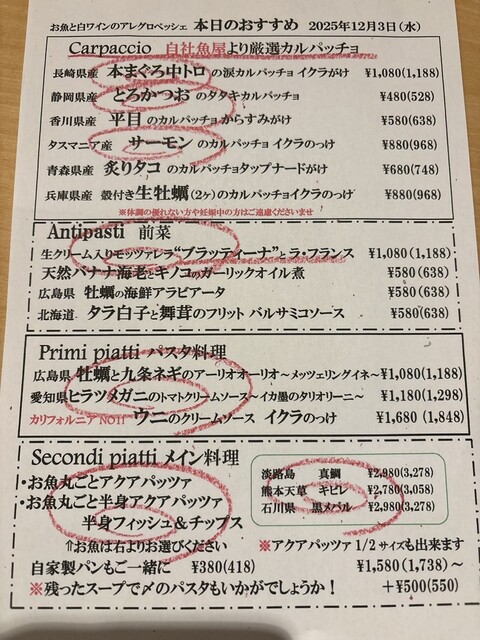 お魚と白ワインのアレグロペッシェ 本日のおすすめ 2025年12月3日(水)
Carpaccio 自社魚屋より厳選カルパッチョ
長崎県産 本まぐろ中トロの涙カルパッチョ イクラがけ ¥1,080(1,188)
静岡県産 とろかつおのタタキカルパッチョ ¥480(528)
香川県産 平目のカルパッチョからすみがけ ¥580(638)
タスマニア産 サーモンのカルパッチョ イクラのっけ ¥880(968)
青森県産 炙りタコのカルパッチョタップナードがけ ¥680(748)
兵庫県産 殻付き生牡蠣(2ヶ)のカルパッチョイクラのっけ ¥880(968)
※体調の優れない方や妊娠中の方はご遠慮くださいませ
Antipasti 前菜
生クリーム入りモッツァレラ“ブラッティーナ”とラ・フランス ¥1,080(1,188)
天然バナナ海老とキノコのガーリックオイル煮 ¥580(638)
広島県 牡蠣の海鮮アラビアータ ¥580(638)
北海道 タラ白子と舞茸のフリット バルサミコソース ¥580(638)
Primi piatti パスタ料理
広島県 牡蠣と九条ネギのアーリオオーリオ~メッツェリングイネ~ ¥1,080(1,188)
愛知県 ヒラツメガニのトマトクリームソース~イカ墨のタリオリーニ~ ¥1,180(1,298)
カリフォルニア NO1! ウニのクリームソース イクラのっけ ¥1,680 (1,848)
Secondi piatti メイン料理
・お魚丸ごとアクアパッツァ
・お魚丸ごと半身アクアパッツァ
半身フィッシュ&チップス
淡路島 真鯛 ¥2,980(3,278)
熊本天草 キビレ ¥2,780(3,058)
石川県 黒メバル ¥2,980(3,278)
⇑お魚は右よりお選びください ※アクアパッツァ 1/2 サイズも出来ます
自家製パンもご一緒に ¥380(418) ¥1,580(1,738)~
※残ったスープで〆のパスタもいかがでしょうか! +¥500(550)